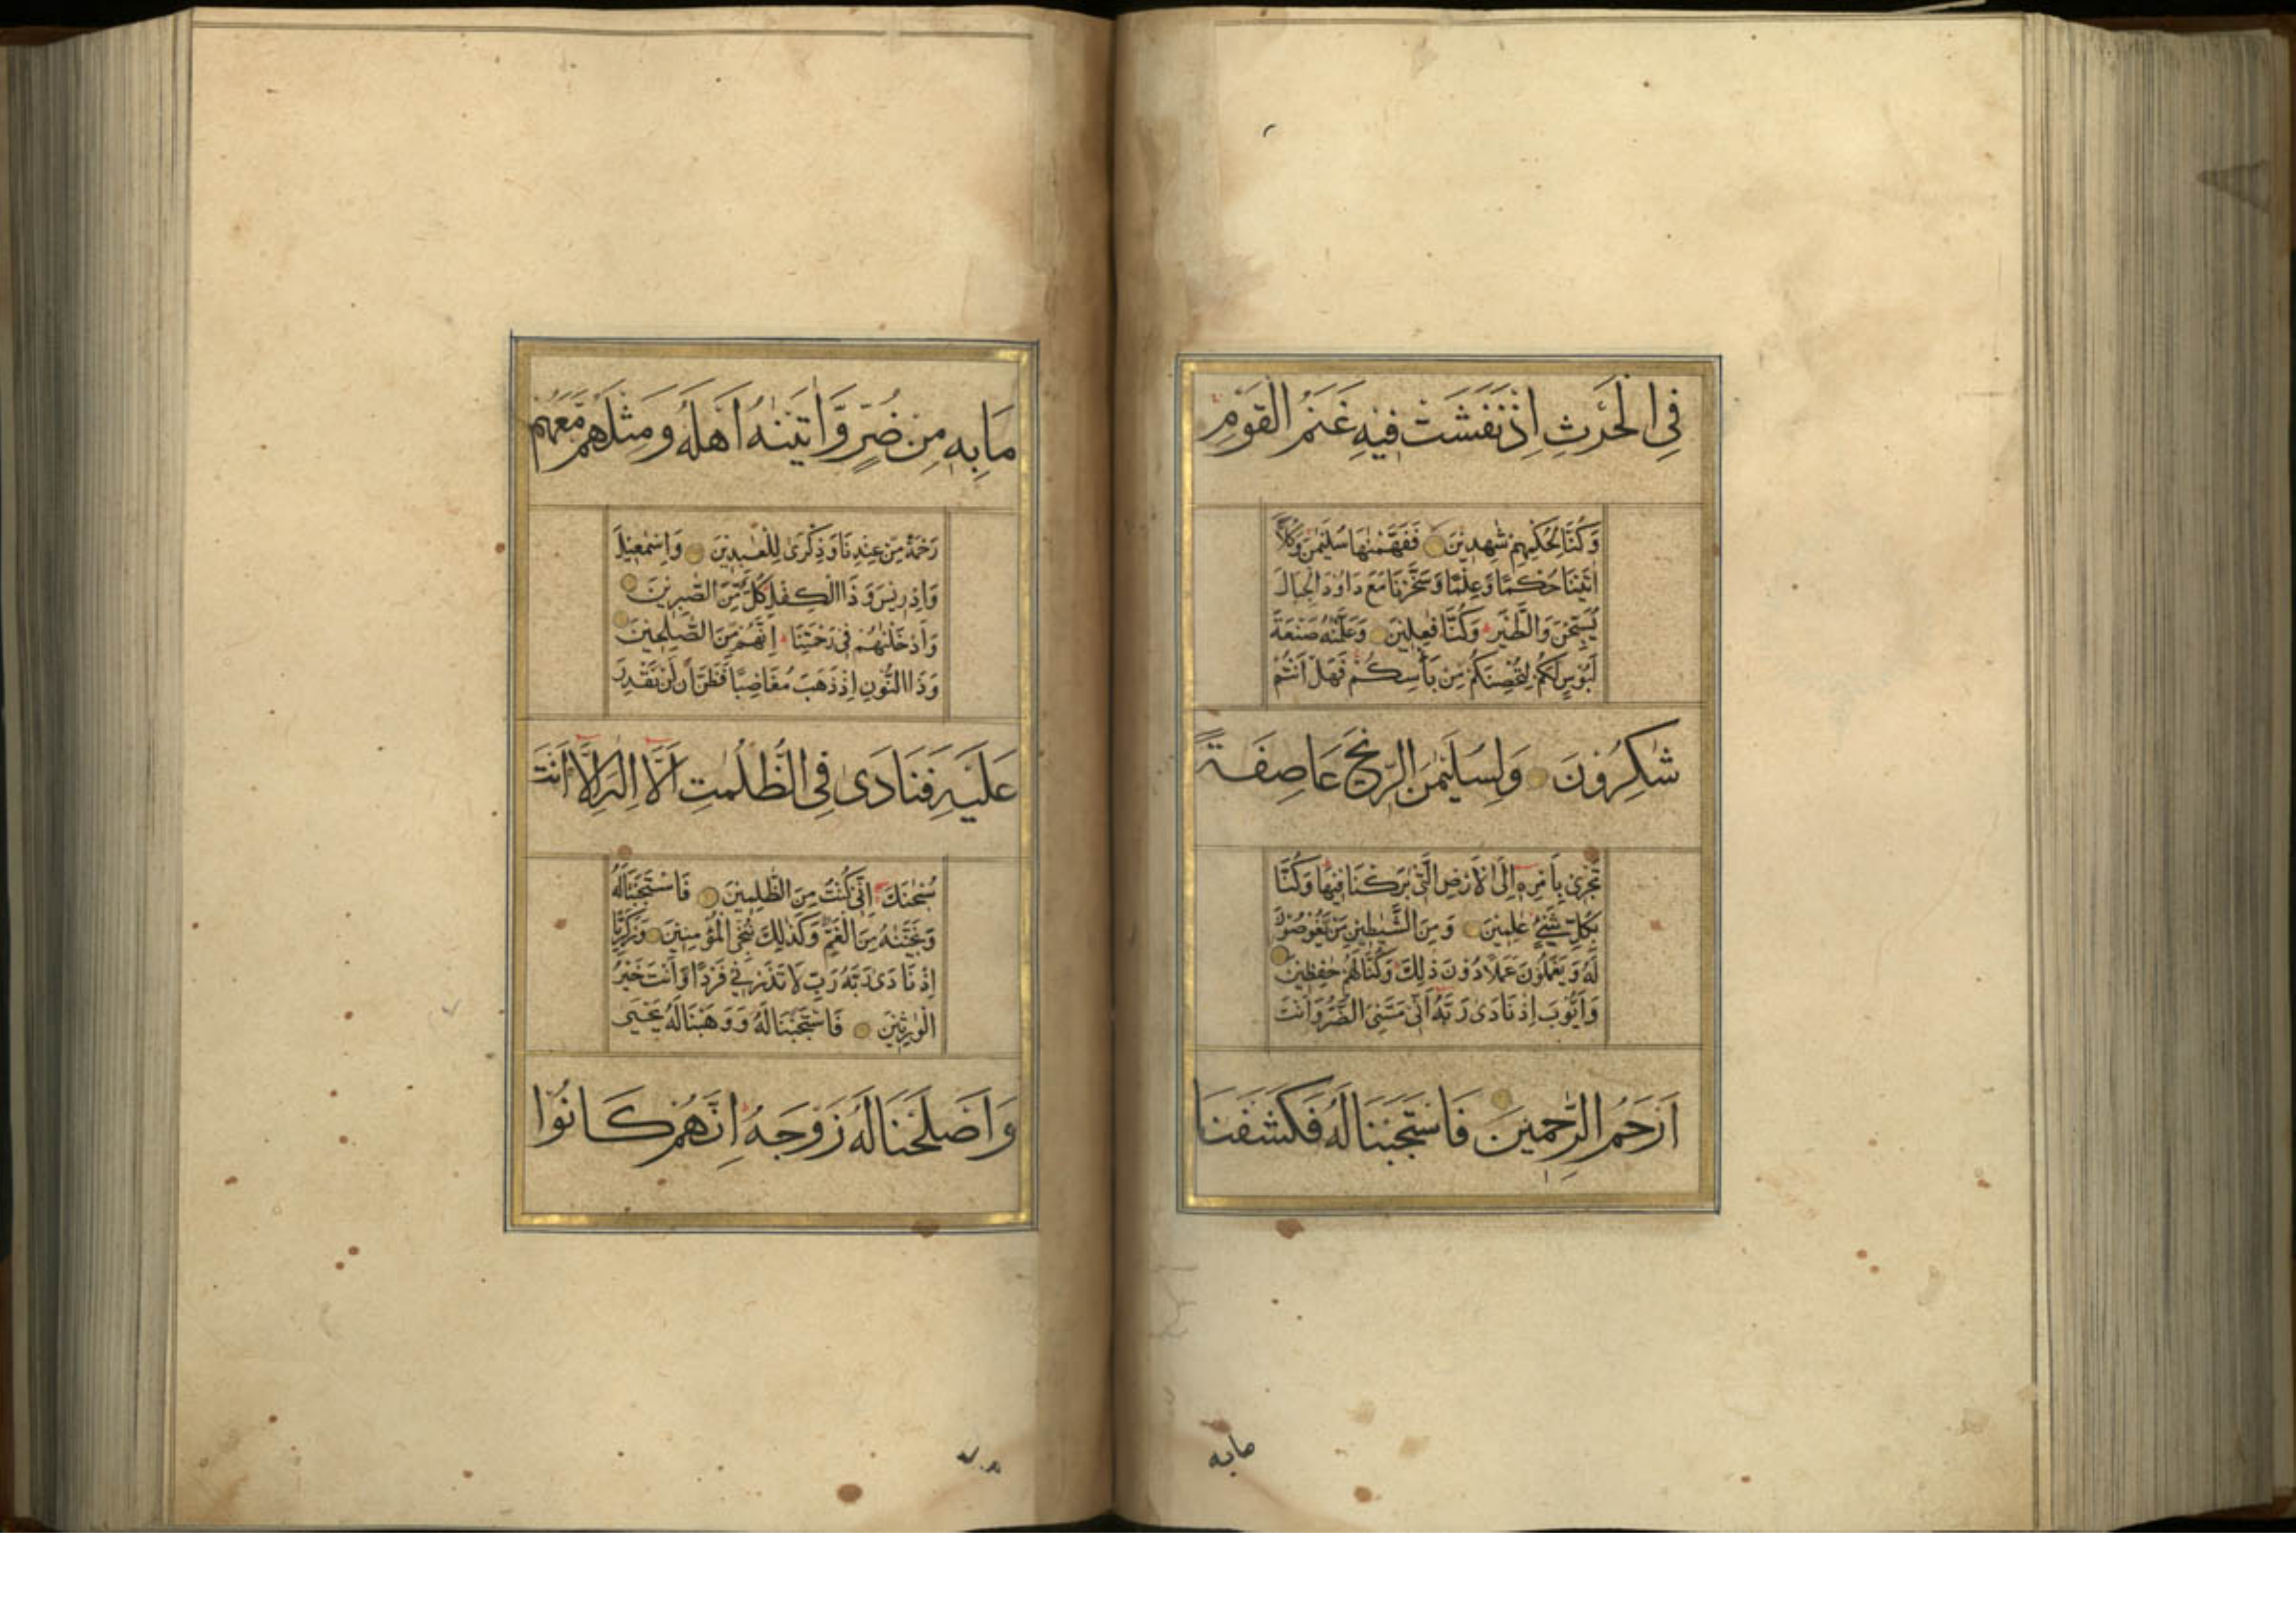 فِى الْحَرْثِ اِذْ نَفَشَتْ فِيهِ غَنَمُ الْقَوْمِ
وَكُنَّا لِحُكْمِهِمْ شٰهِدِيْنَ فَفَهَّمْنٰهَا سُلَيْمٰنَ وَكُلًّا
اٰتَيْنَا حُكْمًا وَّعِلْمًا وَّسَخَّرْنَا مَعَ دَاوُدَ الْجِبَالَ
يُسَبِّحْنَ وَالطَّيْرَ وَكُنَّا فٰعِلِيْنَ وَعَلَّمْنٰهُ صَنْعَةَ
لَبُوْسٍ لَّكُمْ لِتُحْصِنَكُمْ مِّنْ بَاْسِكُمْ فَهَلْ اَنْتُمْ
شٰكِرُوْنَ وَلِسُلَيْمٰنَ الرِّيْحَ عَاصِفَةً
تَجْرِىْ بِاَمْرِهٖ اِلَى الْاَرْضِ الَّتِىْ بٰرَكْنَا فِيْهَا وَكُنَّا
بِكُلِّ شَىْءٍ عٰلِمِيْنَ وَمِنَ الشَّيٰطِيْنِ مَنْ يَّغُوْصُوْنَ
لَهٗ وَيَعْمَلُوْنَ عَمَلًا دُوْنَ ذٰلِكَ وَكُنَّا لَهُمْ حٰفِظِيْنَ
وَاَيُّوْبَ اِذْ نَادٰى رَبَّهٗ اَنِّىْ مَسَّنِىَ الضُّرُّ وَاَنْتَ
اَرْحَمُ الرّٰحِمِيْنَ فَاسْتَجَبْنَا لَهٗ فَكَشَفْنَا
مابه
مَا بِهٖ مِنْ ضُرٍّ وَّاٰتَيْنٰهُ اَهْلَهٗ وَمِثْلَهُمْ مَّعَهُمْ
رَحْمَةً مِّنْ عِنْدِنَا وَذِكْرٰى لِلْعٰبِدِيْنَ وَاِسْمٰعِيْلَ
وَاِدْرِيْسَ وَذَا الْكِفْلِ كُلٌّ مِّنَ الصّٰبِرِيْنَ
وَاَدْخَلْنٰهُمْ فِىْ رَحْمَتِنَا اِنَّهُمْ مِّنَ الصّٰلِحِيْنَ
وَذَا النُّوْنِ اِذْ ذَهَبَ مُغَاضِبًا فَظَنَّ اَنْ لَّنْ نَّقْدِرَ
عَلَيْهِ فَنَادٰى فِى الظُّلُمٰتِ اَنْ لَّا اِلٰهَ اِلَّا اَنْتَ
سُبْحٰنَكَ اِنِّىْ كُنْتُ مِنَ الظّٰلِمِيْنَ فَاسْتَجَبْنَا لَهٗ
وَنَجَّيْنٰهُ مِنَ الْغَمِّ وَكَذٰلِكَ نُنْجِى الْمُؤْمِنِيْنَ وَزَكَرِيَّا
اِذْ نَادٰى رَبَّهٗ رَبِّ لَا تَذَرْنِىْ فَرْدًا وَّاَنْتَ خَيْرُ
الْوٰرِثِيْنَ فَاسْتَجَبْنَا لَهٗ وَوَهَبْنَا لَهٗ يَحْيٰى
وَاَصْلَحْنَا لَهٗ زَوْجَهٗ اِنَّهُمْ كَانُوْا